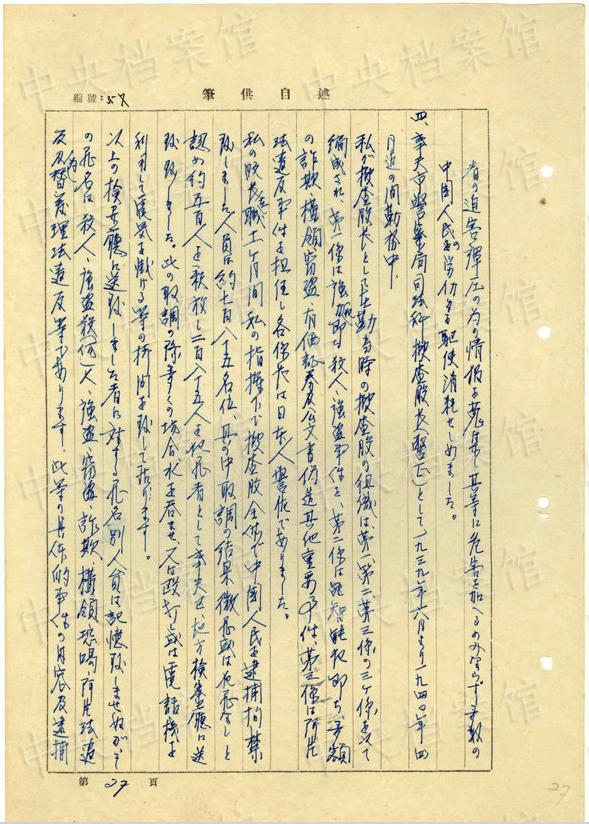 編號:57
述自供筆
者の迫害彈圧の為の情報を蒐集し其等に危害を加へるのみならず多数の
中國人民の労力をも駆使消耗せしめました。
四、奉天市警察局司法科搜查股長(警正)として一九三九年六月より一九四〇年四
月迄の間勤務中、
私が搜查股長として在勤当時の搜查股の組織は第一、第二、第三係の三ヶ係を以て
編成され、第一係は強力犯即ち殺人、強盗事件を、第二係は智能犯即ち多額
の詐欺横領窃盗、有価証券及公文書偽造其他重要事件、第三係は阿片
法違反事件を担任し各係長は日本人警佐でありました。
私の股長在職十ヶ月間私の指揮下で搜查股全体で中國人民を逮捕拘禁
致しました人員は約七百八十五名位、其の中取調の結果微罪或は犯罪なしと
認め約五百人を釈放し二百八十五人を犯罪者として奉天区地方検察廳に送
致致しました。此の取調の際多くの場合水を呑ませ又は殴打し或は電話機を
利用して電気を掛ける等の拷問を致して居ります。
以上の検察廳に送致しました者に対する罪名別人員は記憶致しませぬがそ
の罪名は殺人、強盗殺(傷)人、強盗、窃盗、詐欺、横領、恐喝、阿片法違
反及暫行懲理法違反等であります、此等の具体的事件の内容及逮捕
第 27 頁
27
中央档案馆